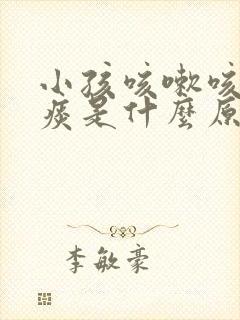 小孩咳嗽咳
痰是什麼原
李敏豪